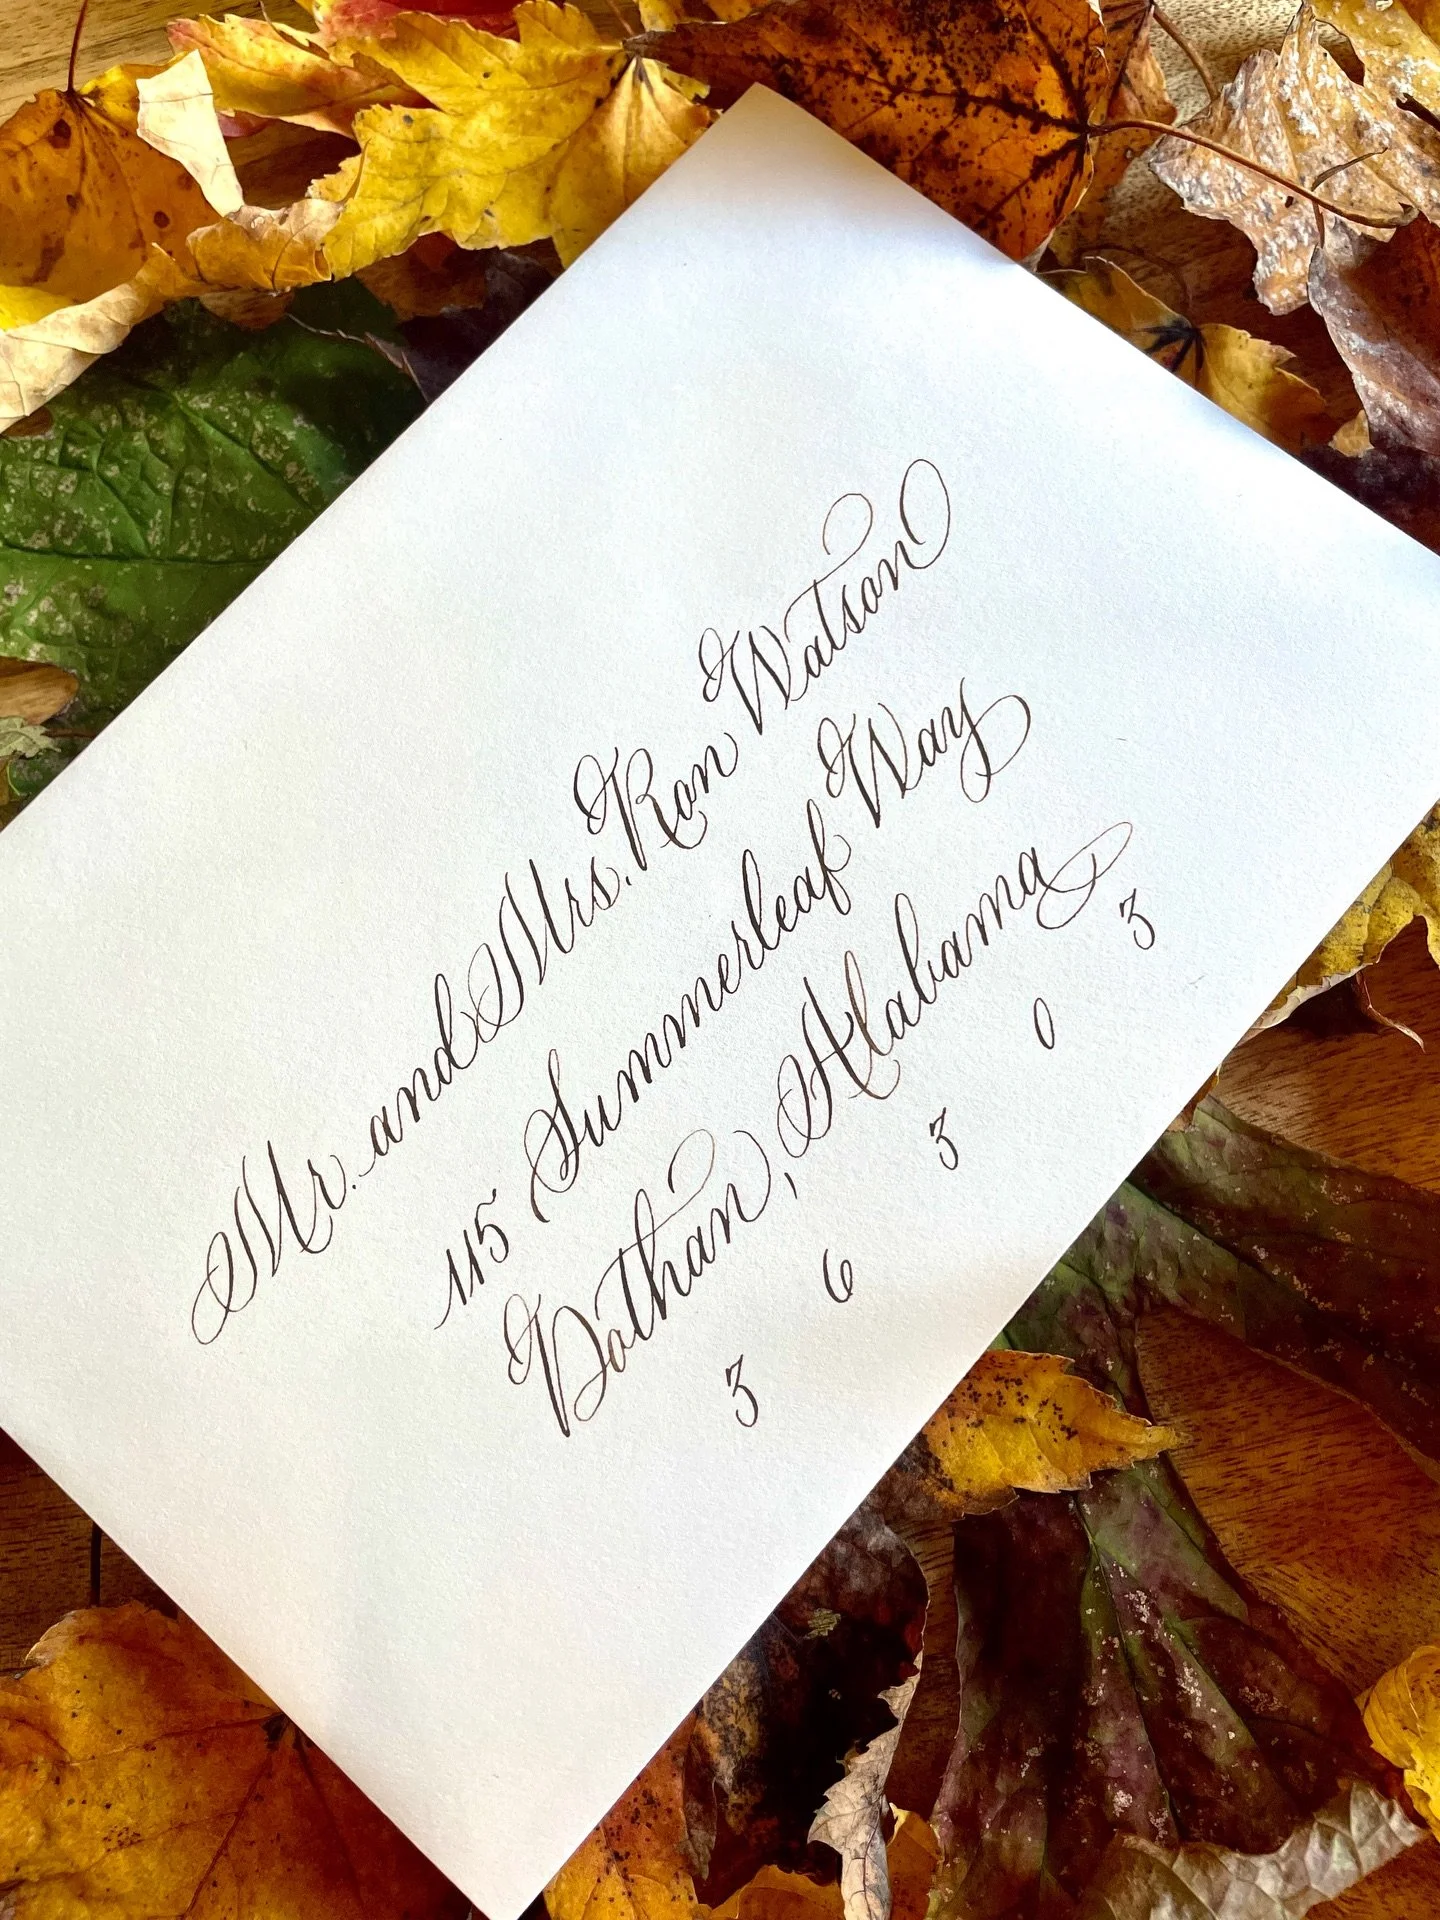 Mr. and Mrs. Ron Watson
115 Summerleaf Way
Dothan, Alabama
3 6 3 0 3